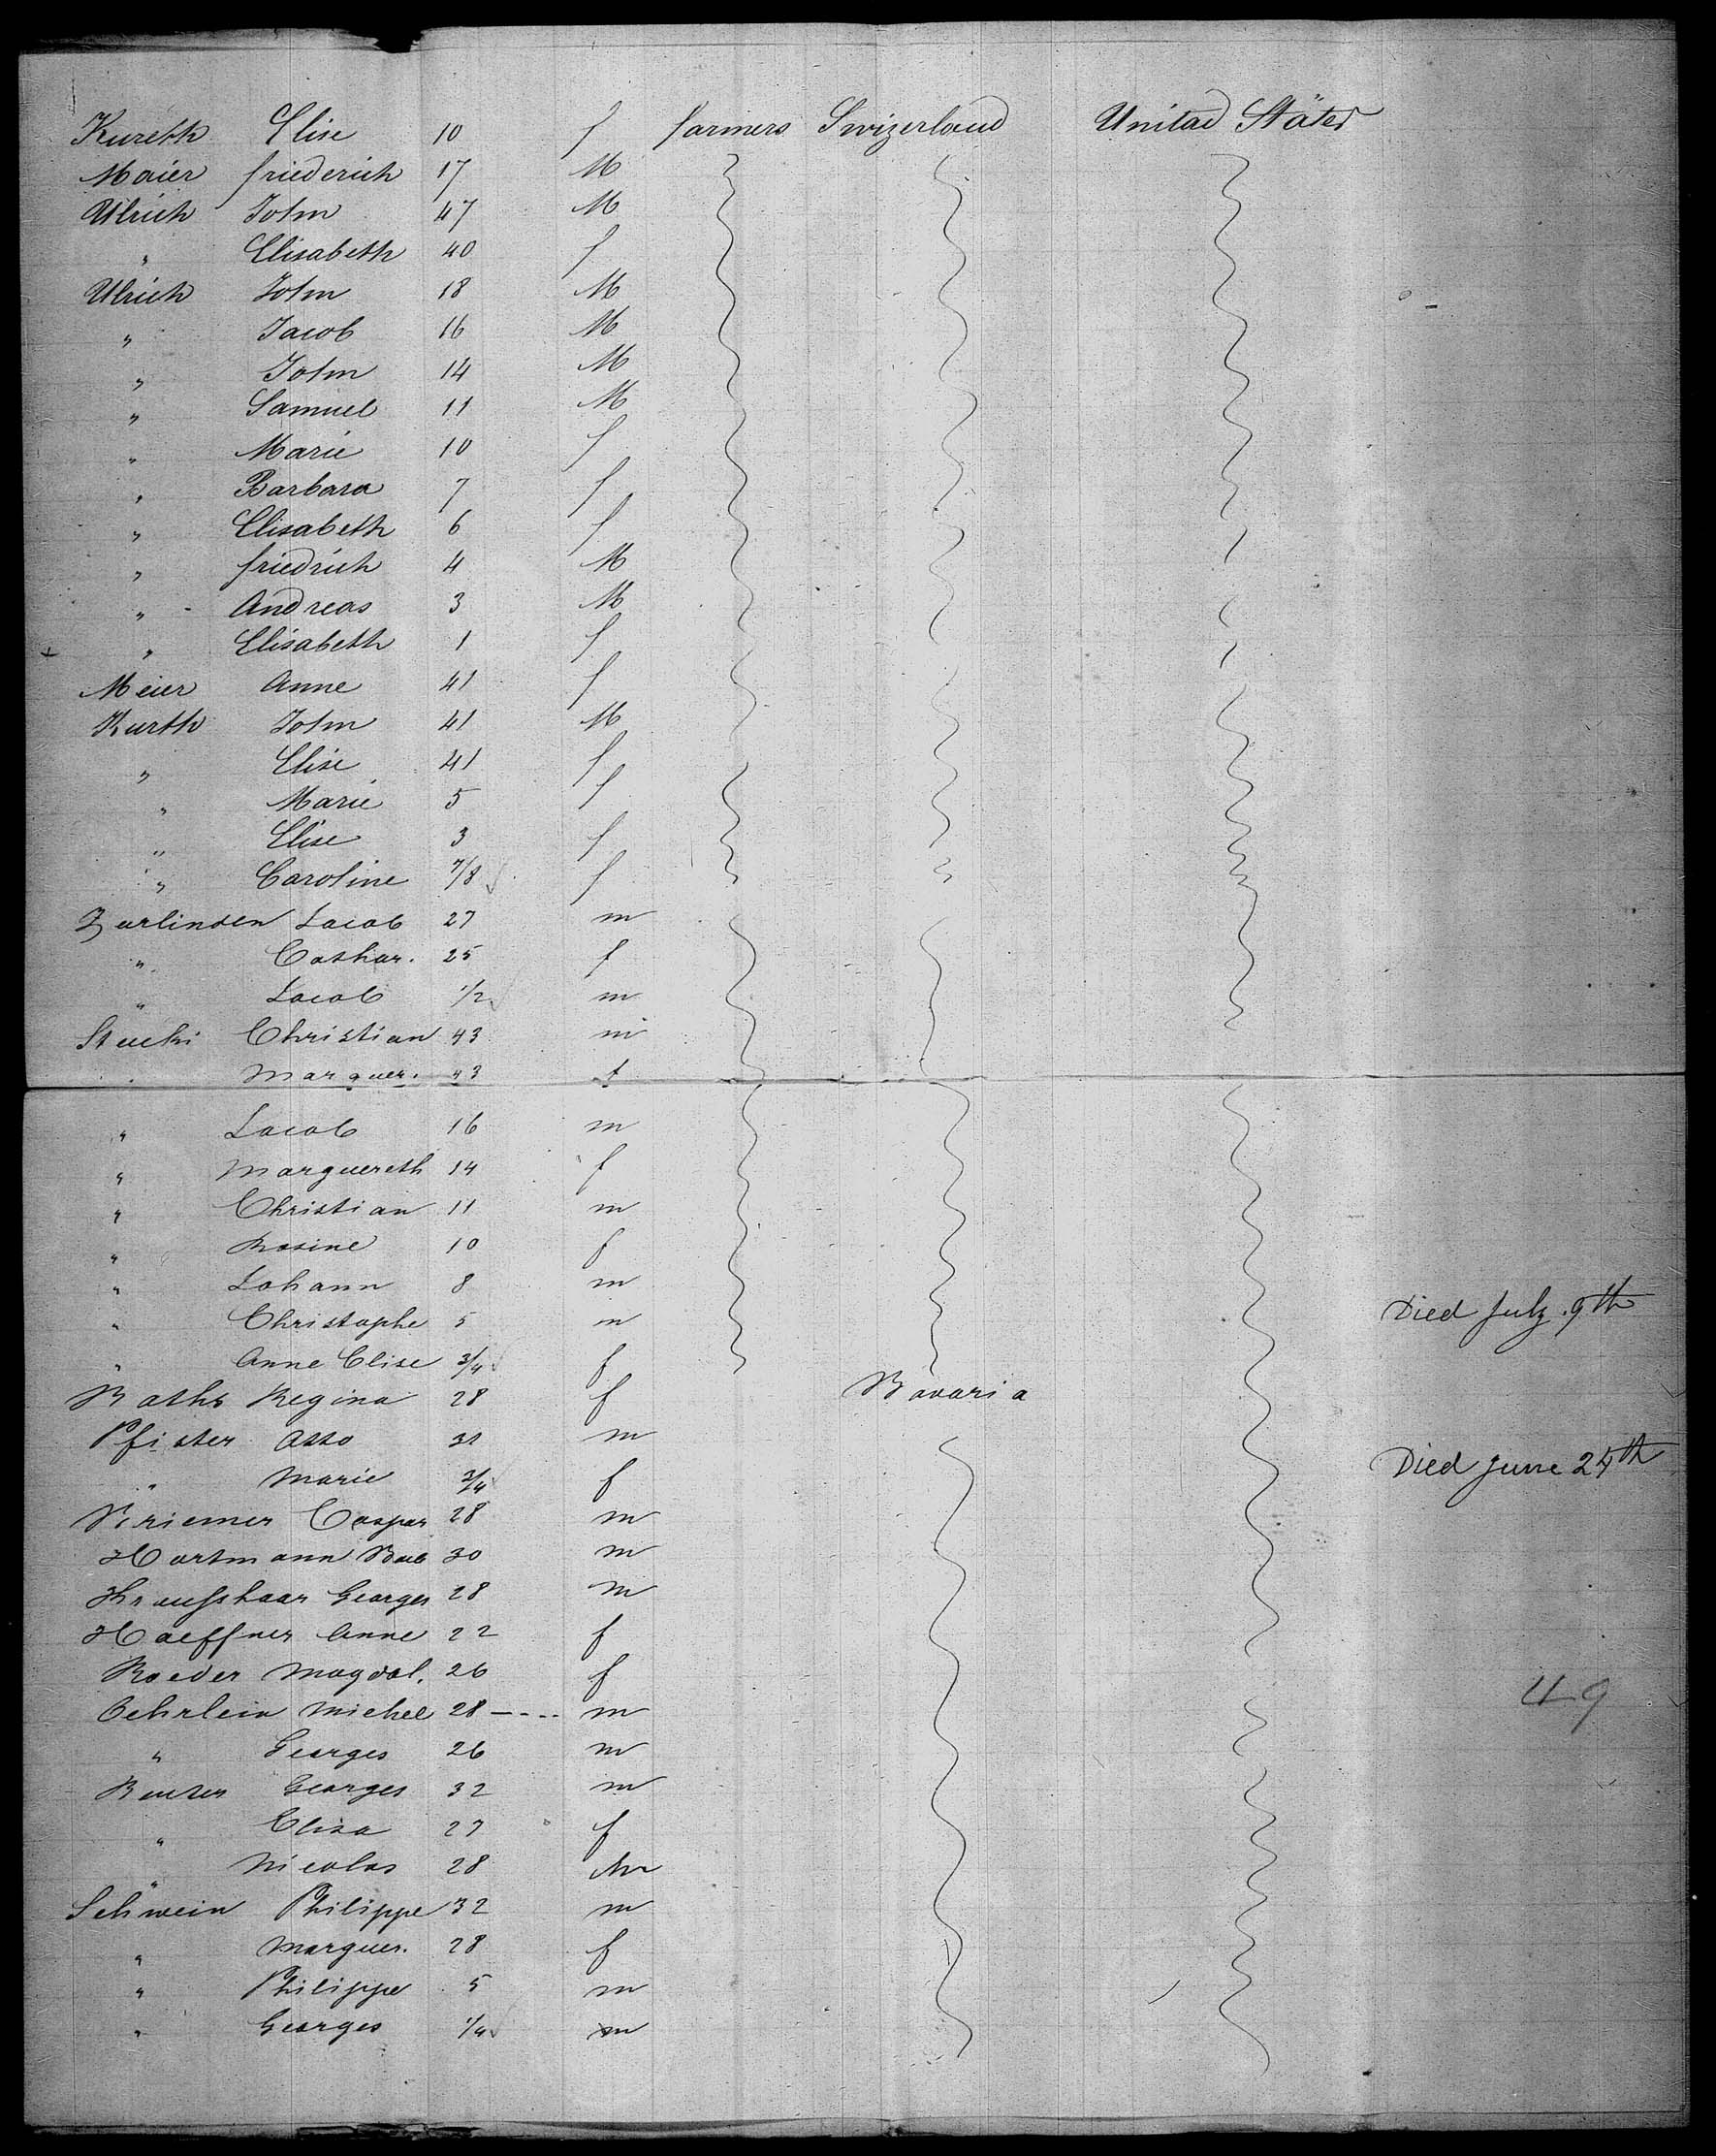 Kureth Elise 10 f farmers Swizerland Unitad Stätes
Maier friederich 17 M
Ulrich John 47 M
" Elisabeth 40 f
Ulrich John 18 M
" Jacob 16 M
" John 14 M
" Samuel 11 M
" Marie 10 f
" Barbara 7 f
" Elisabeth 6 f
" friedrich 4 M
" Andreas 3 M
" Elisabeth 1 f
Meier Anne 41 f
Kurth John 41 M
" Elise 41 f
" Marie 5 f
" Elise 3 f
" Caroline 7/8 f
Zurlinden Jacob 27 m
" Cathar. 25 f
" Jacob 1/2 m
Stucki Christian 43 m
" Marguer. 43 f
" Jacob 16 m
" Marguereth 14 f
" Christian 11 m
" Rosine 10 f
" Johann 8 m
" Christophe 5 m Died July 9th
" Anne Elise 3/4 f
Raths Regina 28 f Bavaria
Pfister Otto 31 m
" Marie 3/4 f Died June 25th
Kriemer Caspar 28 m
Hartmann 30 m
Kraushaar Georges 28 m
Haeffner Anne 22 f
Roeder Magdal. 26 f
Oehrlein Michel 28 - - - - m 49
" Georges 26 m
Georges 32 m
" Elisa 27 f
" Nicolas 28 m
Schwein Philippe 32 m
" Marguer. 28 f
" Philippe 5 m
" Georges 1/4 m